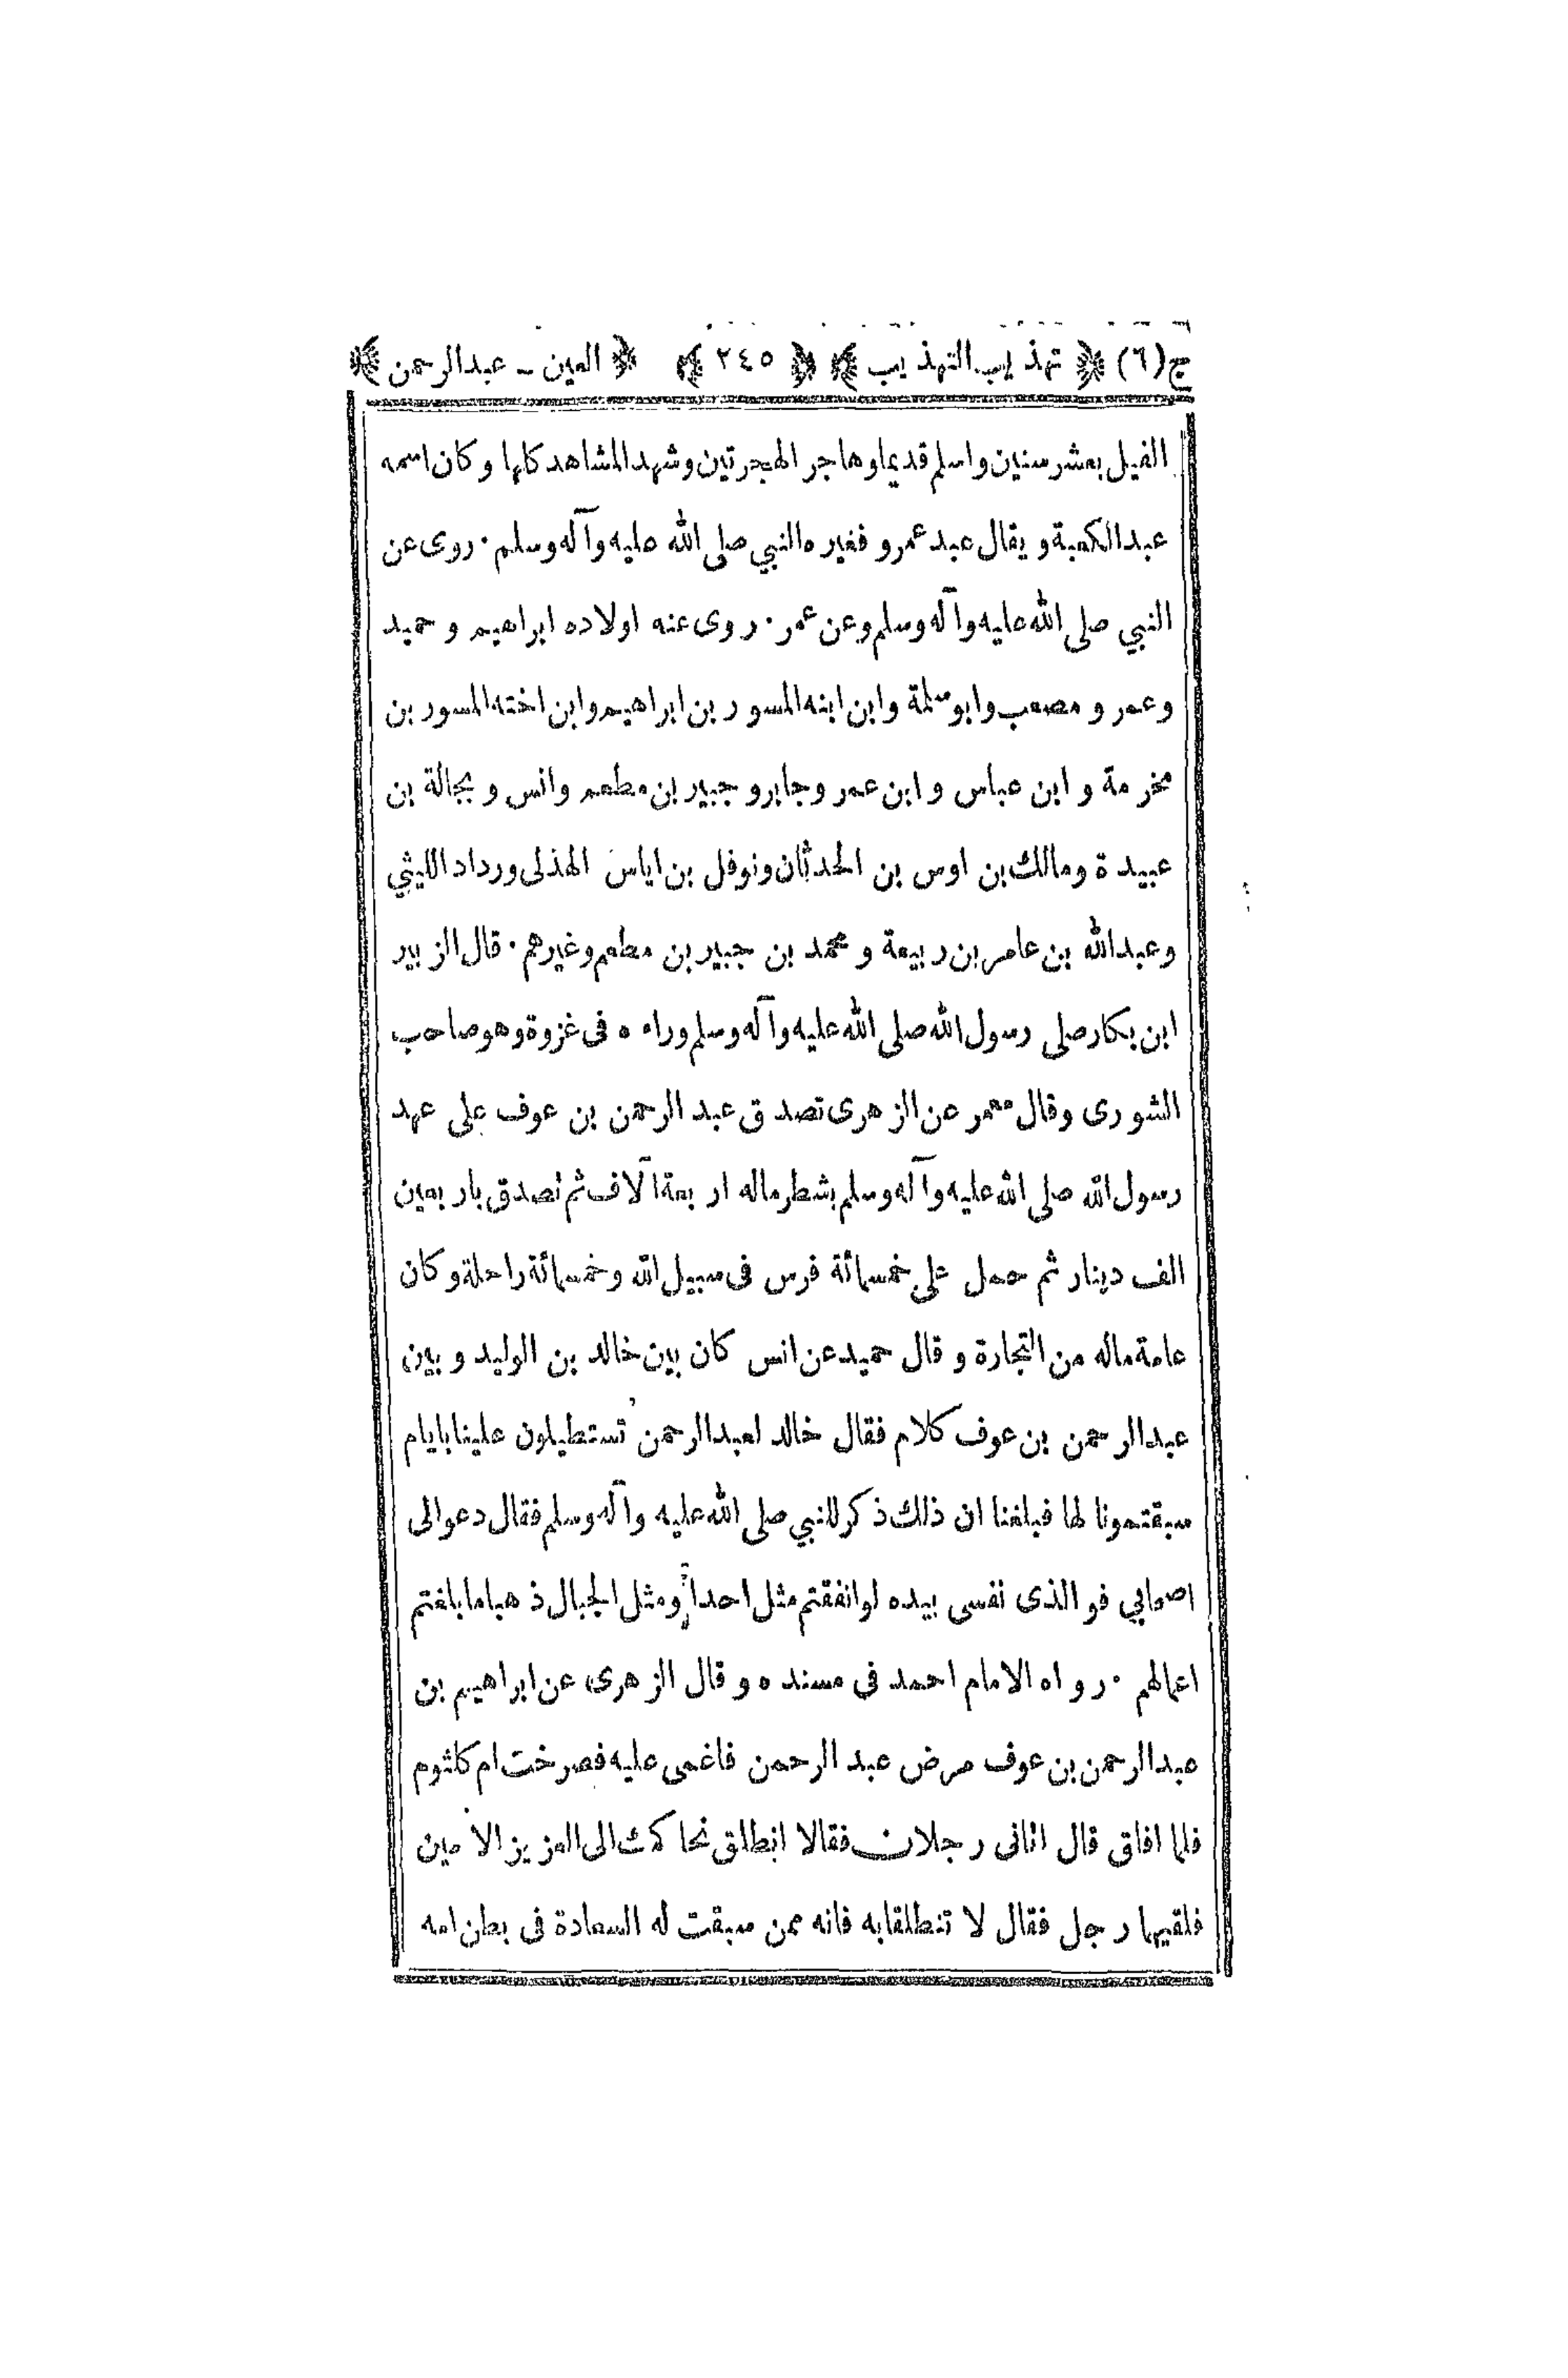 ج(٦) ﴿ تهذيب التهذيب ﴾ ﴿ ٢٤٥ ﴾ ﴿ العين ـ عبدالرحمن ﴾
الفيل بعشر سنين واسلم قديما وهاجر الهجرتين وشهد المشاهد كلها وكان اسمه
عبدالكعبة ويقال عبد عمرو فغيره النبي صلى الله عليه وآله وسلم · روى عن
النبي صلى الله عليه وآله وسلم وعن عمر · روى عنه اولاده ابراهيم وحميد
وعمر ومصعب وابوسلمة وابن ابنه المسور بن ابراهيم وابن اخته المسور بن
مخرمة وابن عباس وابن عمر وجابر وجبير بن مطعم وانس وبجالة بن
عبيدة ومالك بن اوس بن الحدثان ونوفل بن اياس الهذلى ورداد الليثي
وعبدالله بن عامر بن ربيعة ومحمد بن جبير بن مطعم وغيرهم · قال الزبير
ابن بكار صلى رسول الله صلى الله عليه وآله وسلم وراءه فى غزوة وهو صاحب
الشورى وقال معمر عن الزهرى تصدق عبد الرحمن بن عوف على عهد
رسول الله صلى الله عليه وآله وسلم بشطر ماله اربعة آلاف ثم تصدق باربعين
الف دينار ثم حمل على خمسمائة فرس فى سبيل الله وخمسمائة راحلة وكان
عامة ماله من التجارة وقال حميد عن انس كان بين خالد بن الوليد وبين
عبدالرحمن بن عوف كلام فقال خالد لعبدالرحمن تستطيلون علينا بايام
سبقتمونا لها فبلغنا ان ذلك ذكر للنبي صلى الله عليه وآله وسلم فقال دعوا لى
اصحابي فو الذى نفسى بيده لو انفقتم مثل احد او مثل الجبال ذهبا ما بلغتم
اعمالهم · رواه الامام احمد فى مسنده وقال الزهرى عن ابراهيم بن
عبدالرحمن بن عوف مرض عبد الرحمن فاغمى عليه فصرخت ام كلثوم
فلما افاق قال اتانى رجلان فقالا انطلق نحاكمك الى العزيز الامين
فلقيهما رجل فقال لا تنطلقا به فانه ممن سبقت له السعادة فى بطن امه